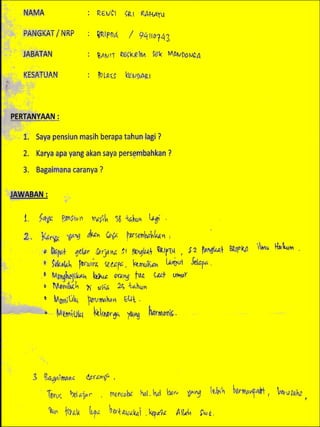 NAMA : RENCI SRI RAHAYU
PANGKAT / NRP : BRIPDA / 94110743
JABATAN : BANIT RESKRIM SEK MANDONGA
KESATUAN : POLRES KENDARI
PERTANYAAN :
1. Saya pensiun masih berapa tahun lagi ?
2. Karya apa yang akan saya persembahkan ?
3. Bagaimana caranya ?
JAWABAN :
1. Saya Pensiun masih 38 tahun lagi.
2. Karya yang akan saya persembahkan,
Dapat gelar Sarjana S1 Pangkat BRIPTU, S2 Pangkat BRIPKA Ilmu Hukum.
Sekolah Perwira Secapa, kemudian Lanjut Selapa.
Menghajikan kedua orang tua saat umur
Menikah di usia 25 tahun
Memiliki perumahan Elit.
Memiliki keluarga yang harmonis.
3. Bagaimana caranya.
Terus belajar, mencoba hal-hal baru yang lebih bermanfaat, berusaha,
dan tidak lupa bertawakal kepada Allah Swt.